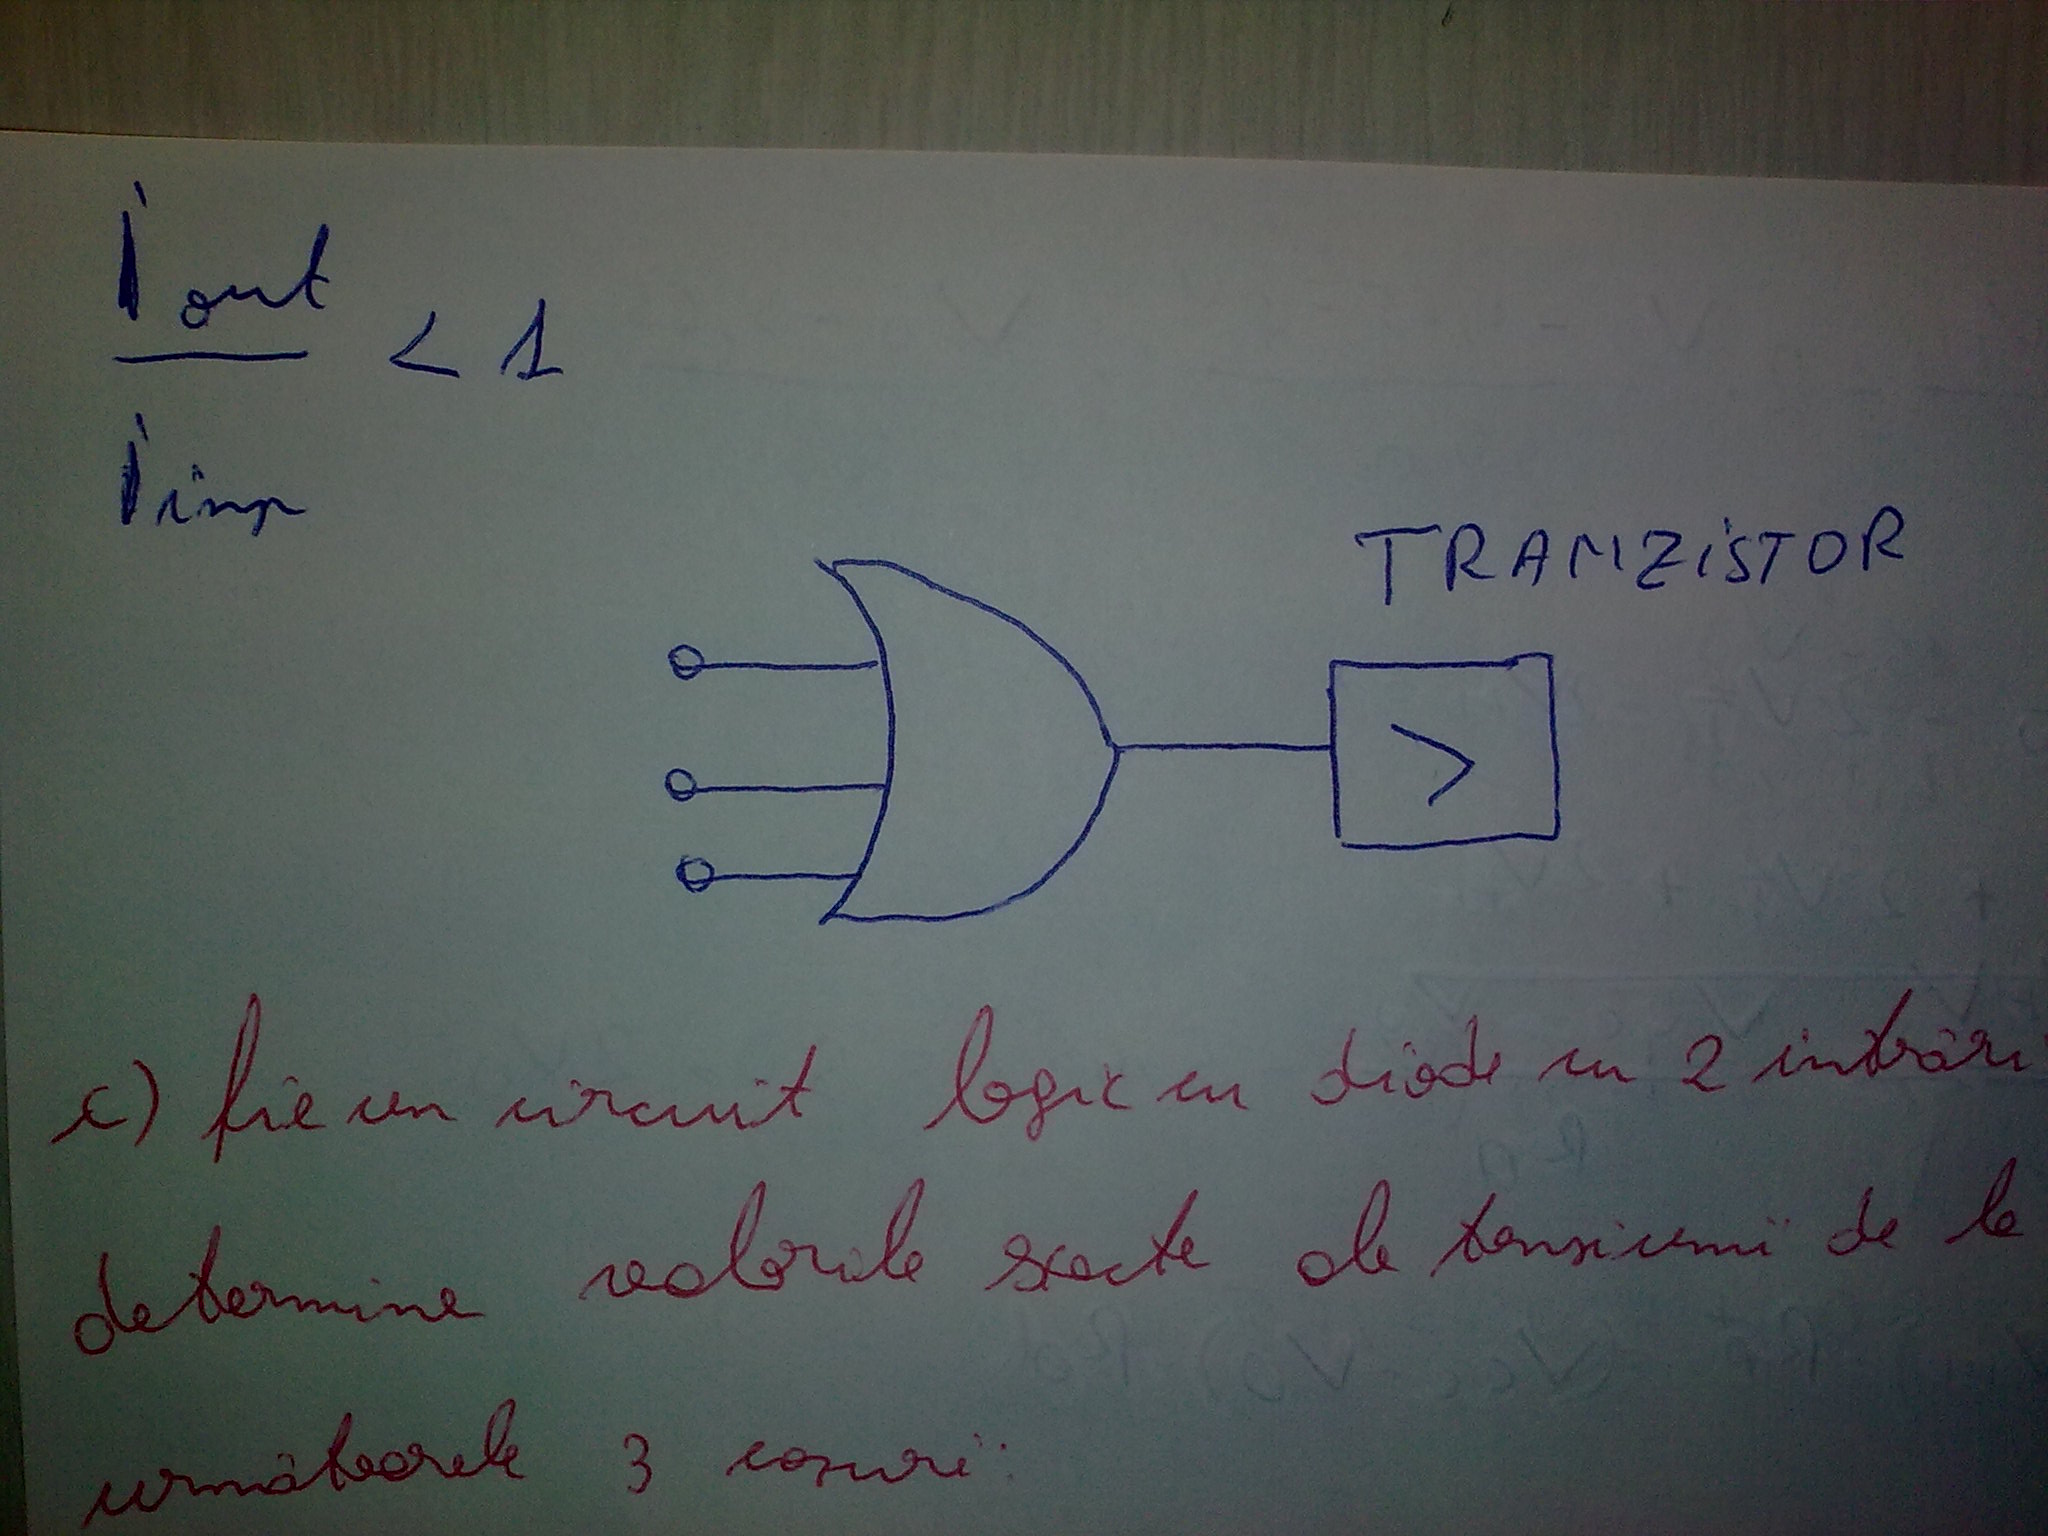 Iout
< 1
Iinp
TRANZiSTOR
>
c) fie un circuit logic cu diode cu 2 intrări
determine valorile exacte ale tensiunii de la
următoarele 3 cazuri: